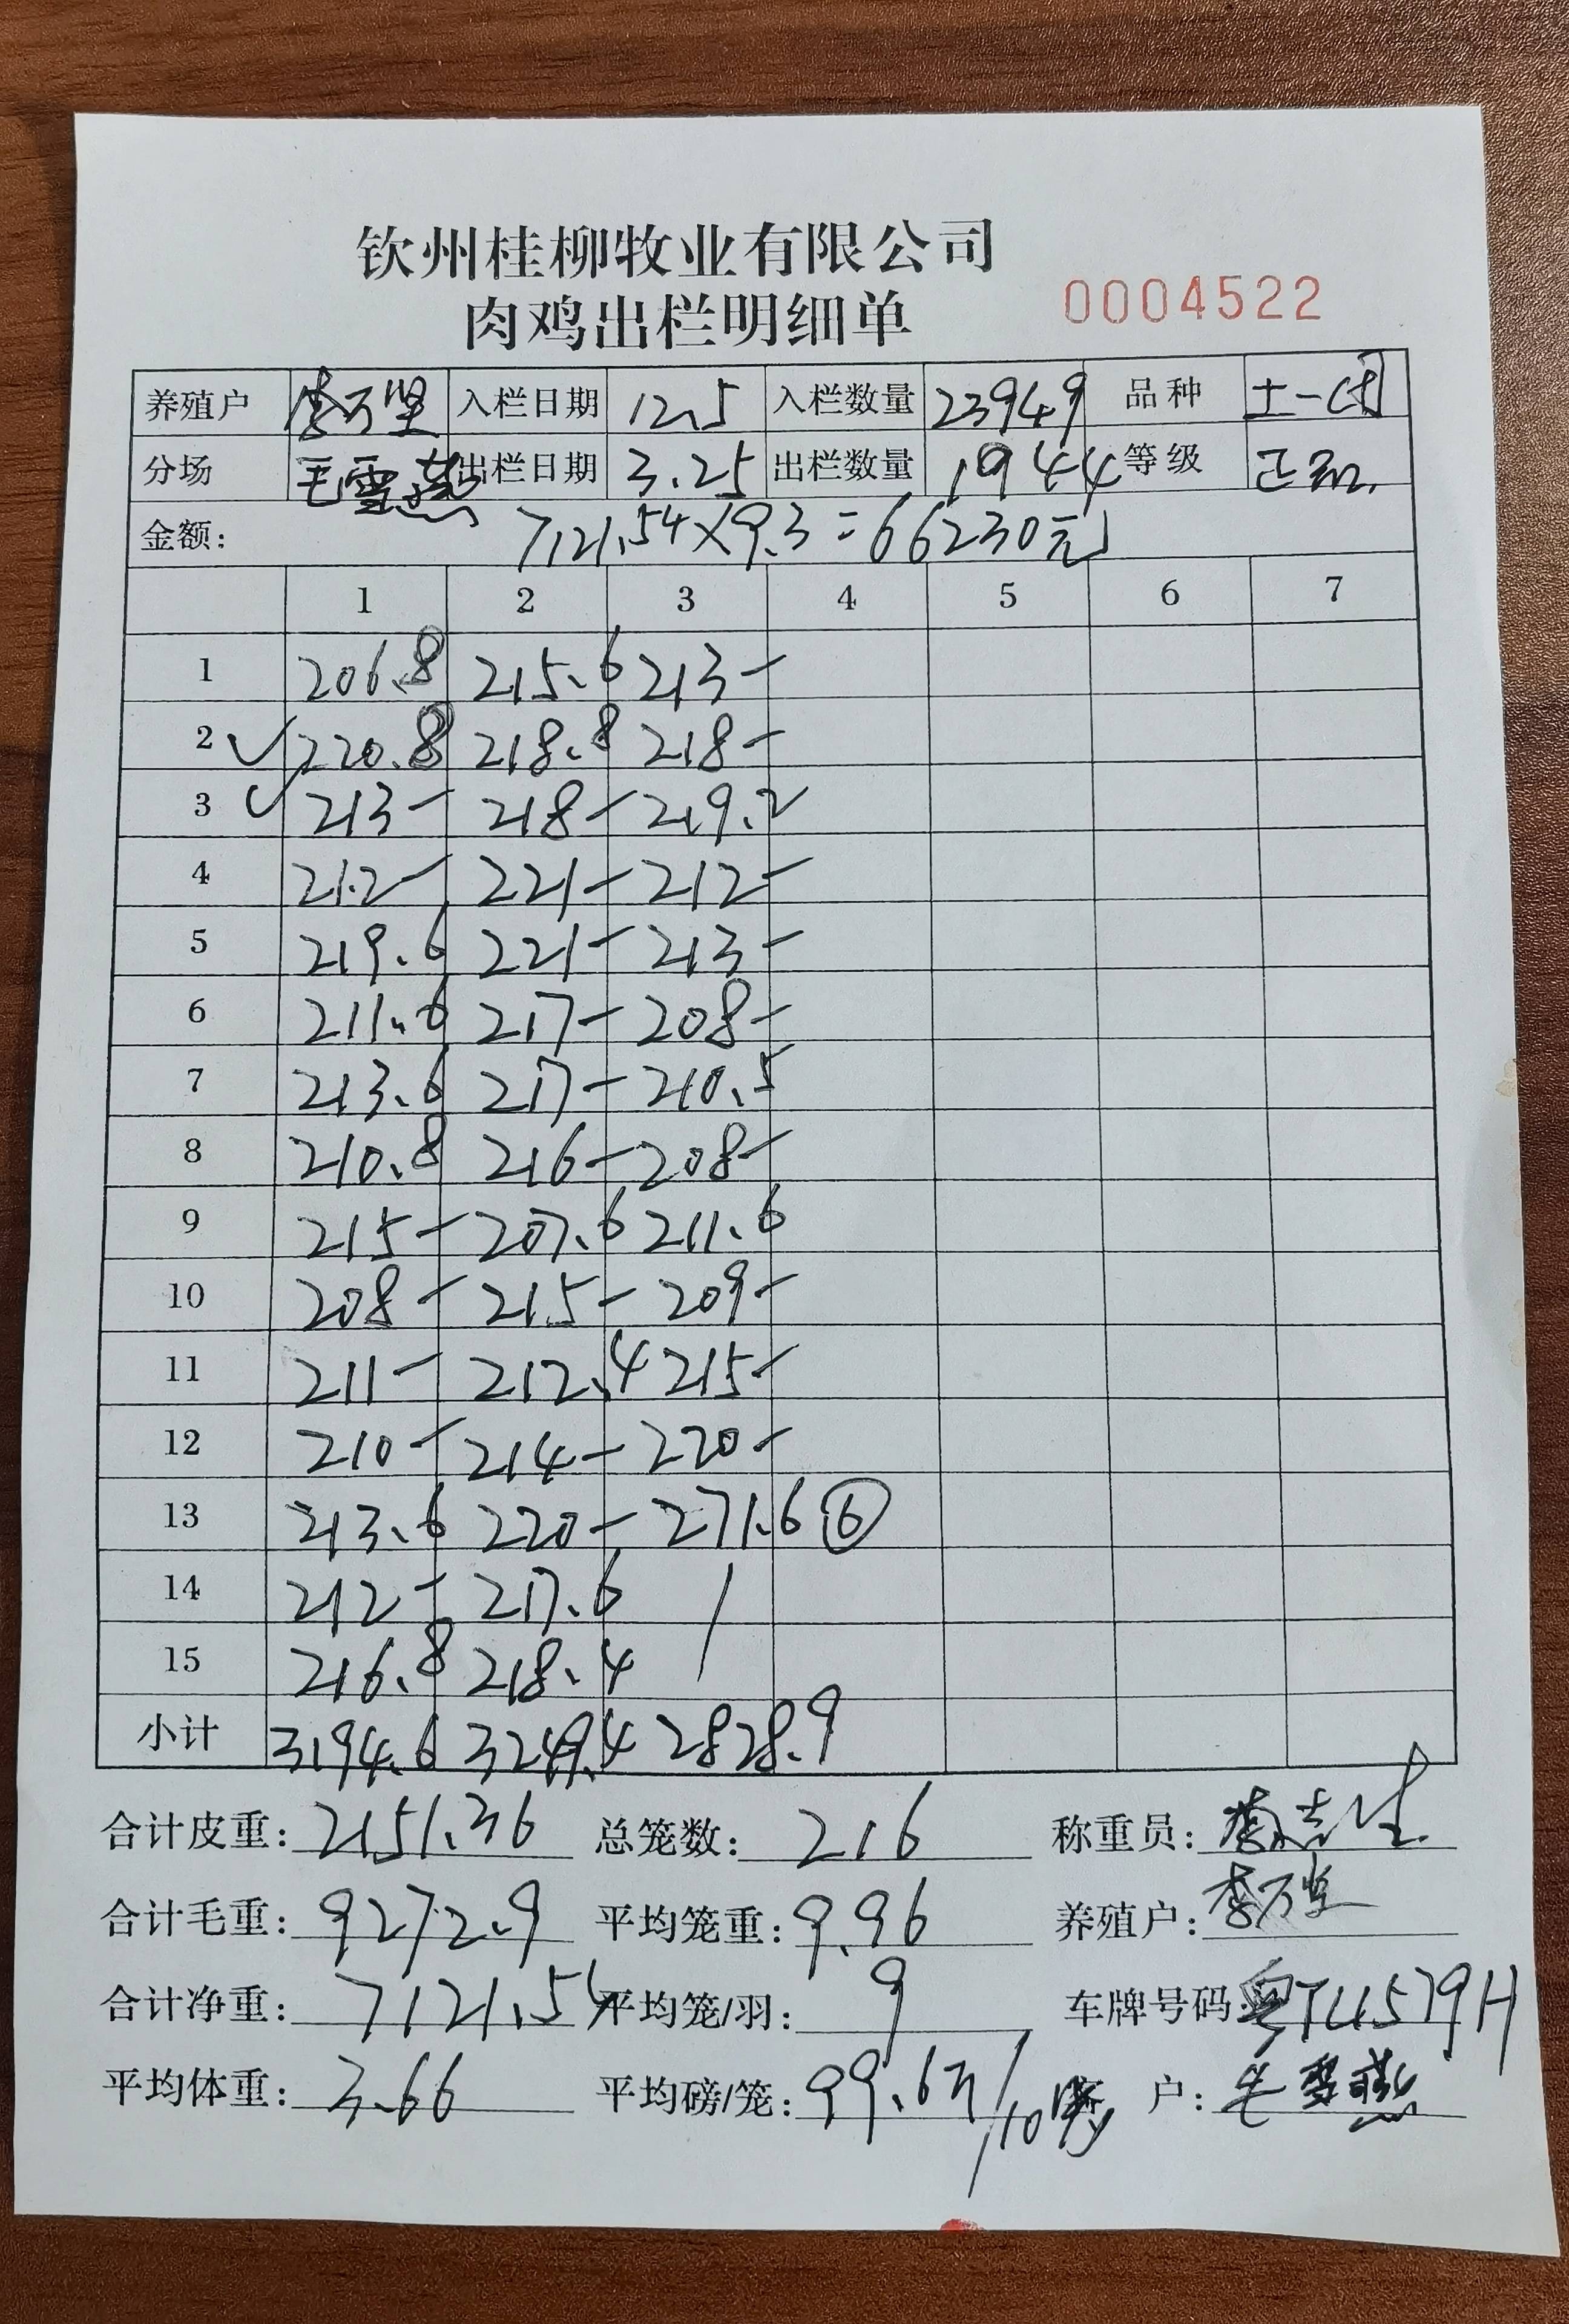 钦州桂柳牧业有限公司
肉鸡出栏明细单 0004522
养殖户 李万坚 入栏日期 12.5 入栏数量 23949 品种 土一
分场 毛雪燕 出栏日期 3.25 出栏数量 1944 等级 正品
金额: 7121.54×9.3=66230元
1 2 3 4 5 6 7
1 206.8 215.6 213-
2 ✓ 220.8 218.8 218-
3 ✓ 213- 218- 219.2
4 212- 221- 212-
5 219.6 221- 213-
6 211.6 217- 208-
7 213.6 217- 210.5
8 210.8 216- 208-
9 215- 207.6 211.6
10 208- 215- 209-
11 211- 212.4 215-
12 210- 214- 220-
13 213.6 220- 271.6 ⑥
14 212- 217.6
15 216.8 218.4
小计 3194.6 3249.4 2828.9
合计皮重: 2151.36 总笼数: 216 称重员:
合计毛重: 9272.9 平均笼重: 9.96 养殖户: 李万坚
合计净重: 7121.54 平均笼/羽: 9 车牌号码: 粤TU579H
平均体重: 3.66 平均磅/笼: 99.6斤/10 户: 毛雪燕